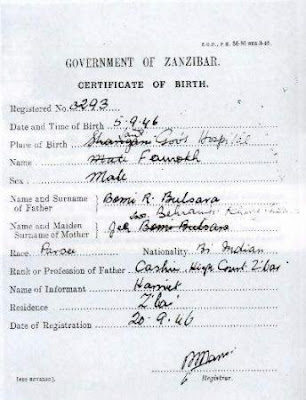 GOVERNMENT OF ZANZIBAR.
CERTIFICATE OF BIRTH.
Registered No. 3293
Date and Time of Birth 5-9-46
Place of Birth Govt Hospital
Name Farrokh
Sex Male
Name and Surname of Father } Bomi R. Bulsara
Name and Maiden Surname of Mother } Jer Bomi Bulsara
Race Parsee Nationality Br. Indian
Rank or Profession of Father Cashier, High Court Z'bar
Name of Informant
Residence Z'bar
Date of Registration 20-9-46
Registrar.
[SEE REVERSE].